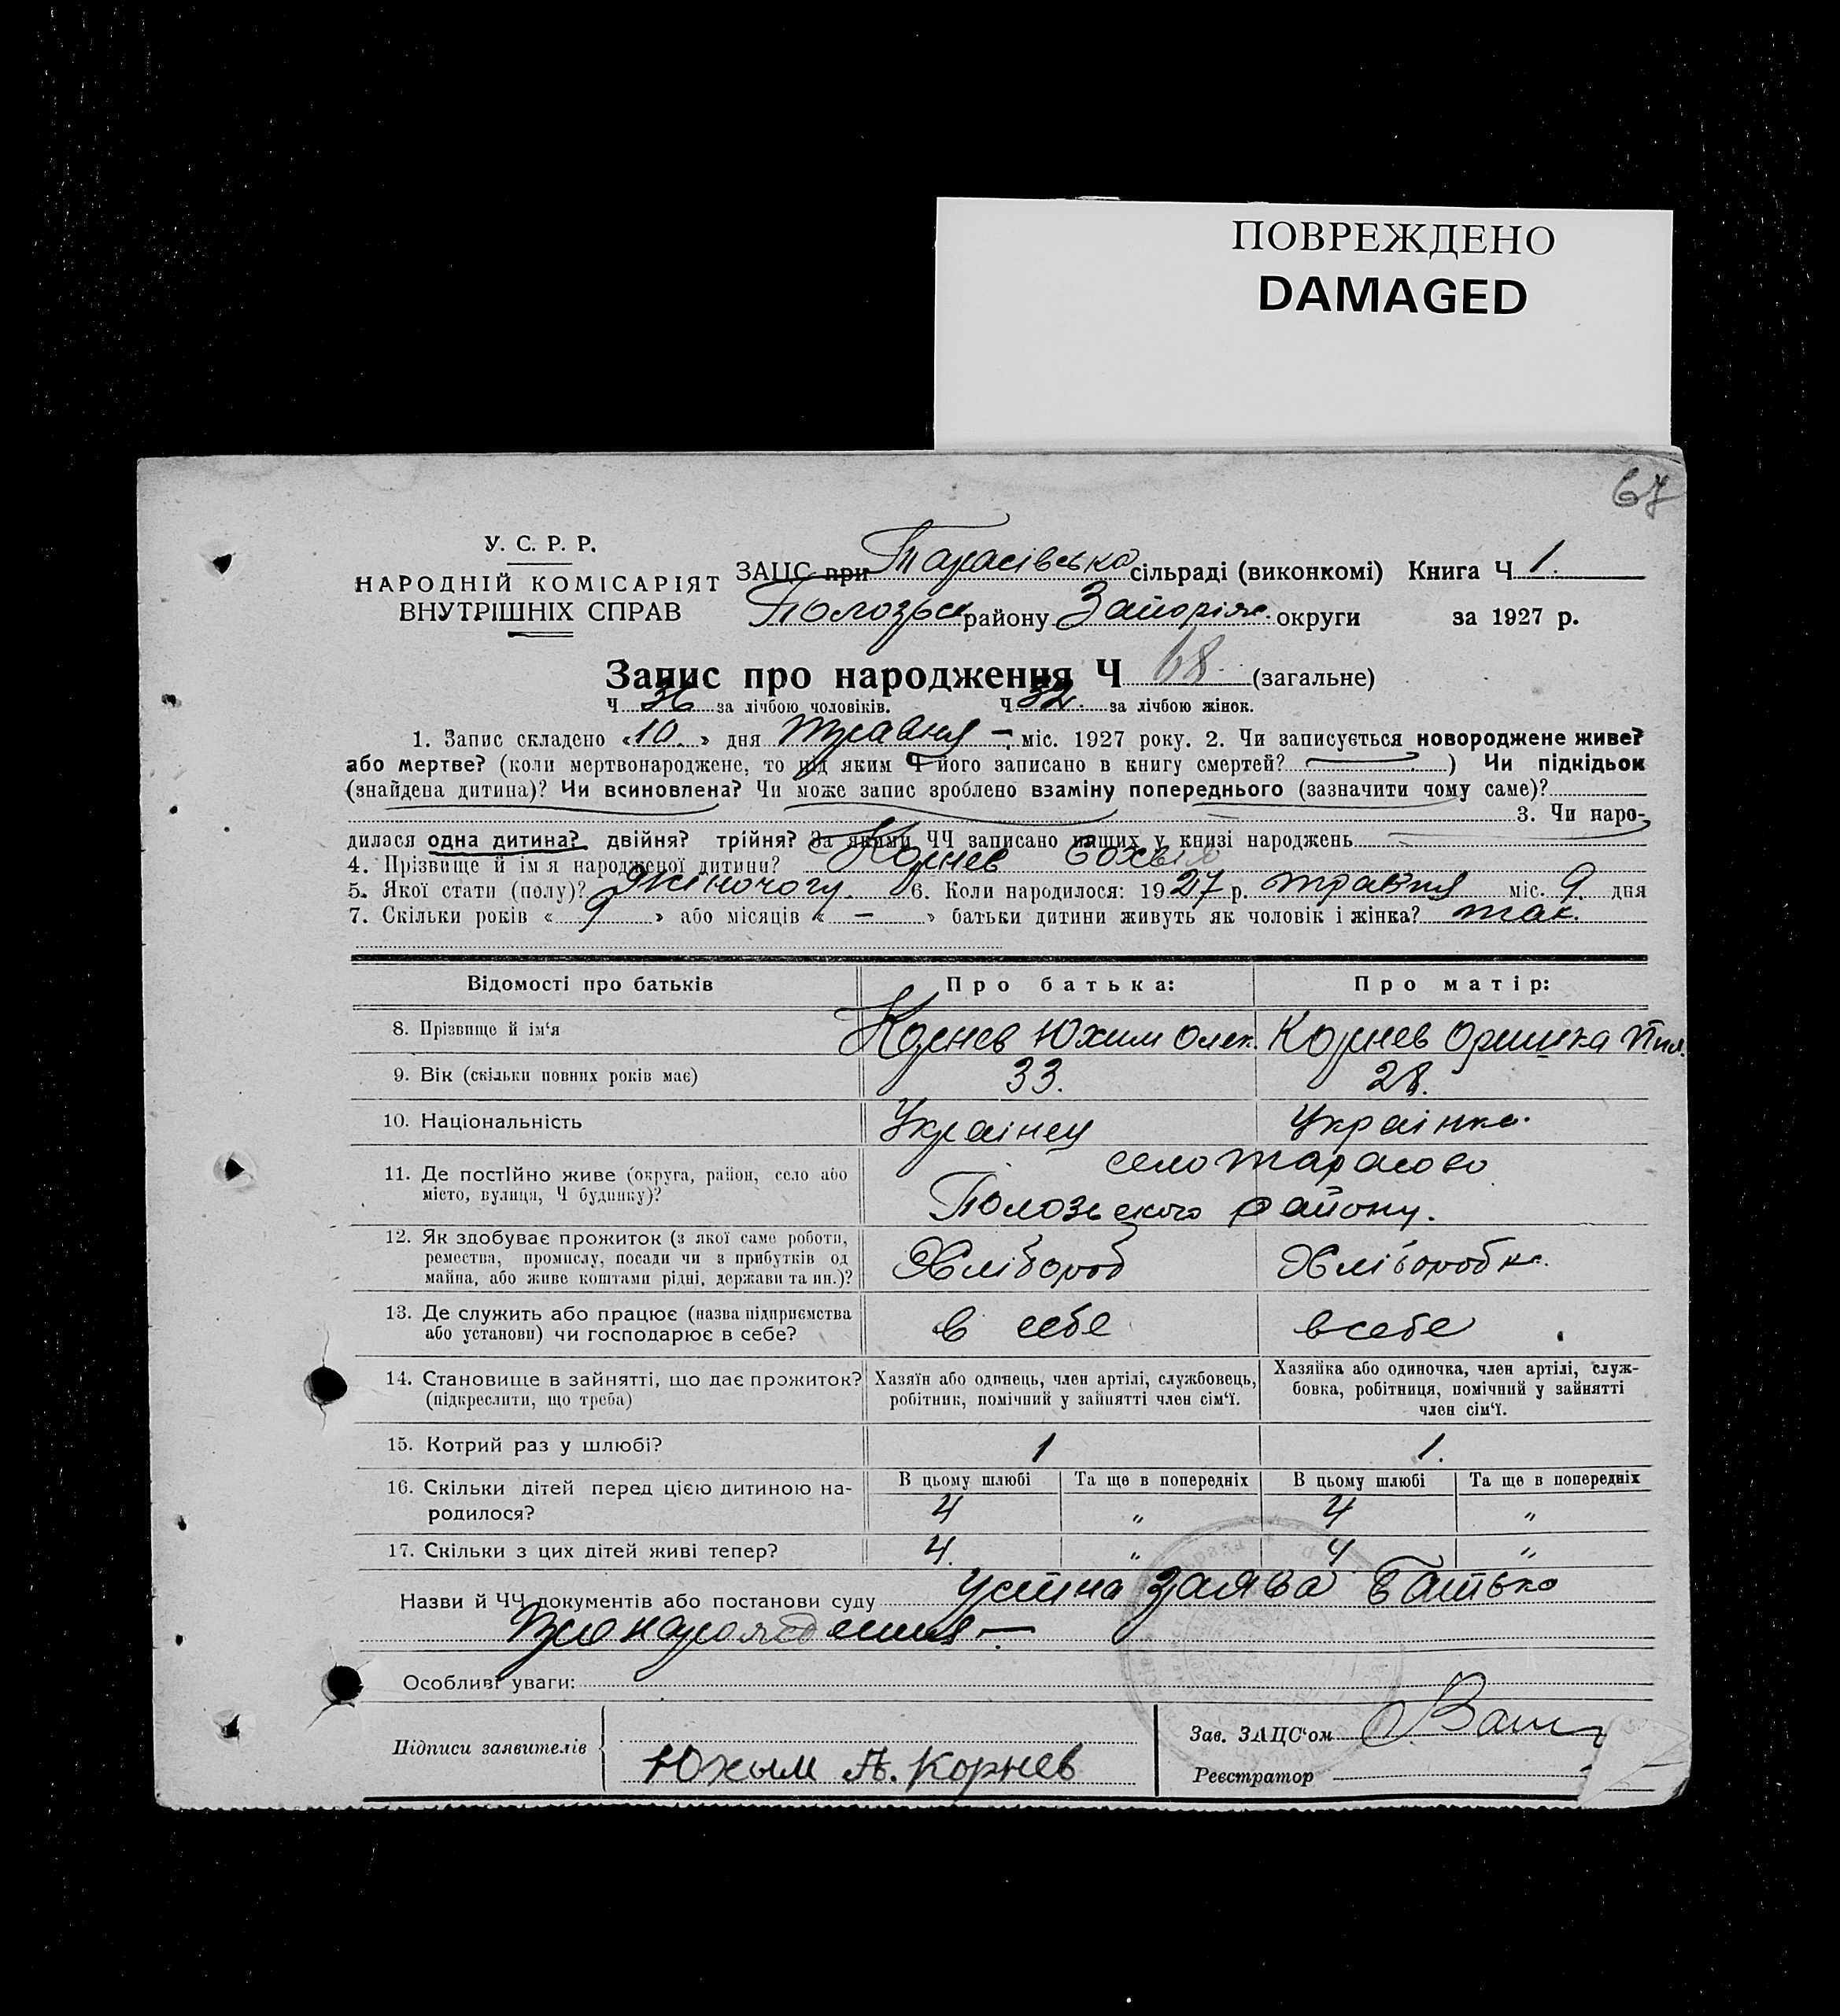 ПОВРЕЖДЕНО
DAMAGED
67
У. С. Р. Р.
НАРОДНІЙ КОМІСАРІЯТ
ВНУТРІШНІХ СПРАВ
ЗАЦС при Тарасівська сільраді (виконкомі) Книга Ч 1.
Полозьк району Запоріж. округи за 1927 р.
Запис про народження Ч 68 (загальне)
Ч 36 за лічбою чоловіків. Ч 32. за лічбою жінок.
1. Запис складено «10.» дня травня – міс. 1927 року. 2. Чи записується новороджене живе?
або мертве? (коли мертвонароджене, то під яким Ч його записано в книгу смертей? ) Чи підкідьок
(знайдена дитина)? Чи всиновлена? Чи може запис зроблено взаміну попереднього (зазначити чому саме)?
3. Чи наро-
дилася одна дитина? двійня? трійня? За якими ЧЧ записано инших у книзі народжень
4. Прізвище й ім я народженої дитини? Корнев
5. Якої стати (полу)? жіночогу. 6. Коли народилося: 1927 р. травня міс. 9. дня
7. Скільки років « 9 » або місяців « – » батьки дитини живуть як чоловік і жінка? так.
Відомості про батьків Про батька: Про матір:
8. Прізвище й ім‘я Корнев Юхим Олек. Корнев Оришка Пил.
9. Вік (скільки повних років має) 33. 28.
10. Національність Українец Українка.
11. Де постійно живе (округа, район, село або
місто, вулиця, Ч будинку)?
село Тарасово
Полозьского району.
12. Як здобуває прожиток (з якої саме роботи,
ремества, промислу, посади чи з прибутків од
майна, або живе коштами рідні, держави та ин.)?
Хлібороб Хліборобка.
13. Де служить або працює (назва підприємства
або установи) чи господарює в себе?
в себе в себе
14. Становище в зайнятті, що дає прожиток?
(підкреслити, що треба)
Хазяїн або одинець, член артілі, службовець,
робітник, помічний у зайнятті член сім‘ї.
Хазяйка або одиночка, член артілі, служ-
бовка, робітниця, помічний у зайнятті
член сім‘ї.
15. Котрий раз у шлюбі? 1 1.
16. Скільки дітей перед цією дитиною на-
родилося?
В цьому шлюбі Та ще в попередніх В цьому шлюбі Та ще в попередніх
4 „ 4 „
17. Скільки з цих дітей живі тепер? 4. „ 4 „
Назви й ЧЧ документів або постанови суду Устна заява батько
про народження –
Особливі уваги:
Підписи заявителів Юхым А. Корнев
Зав. ЗАЦС‘ом
Реєстратор